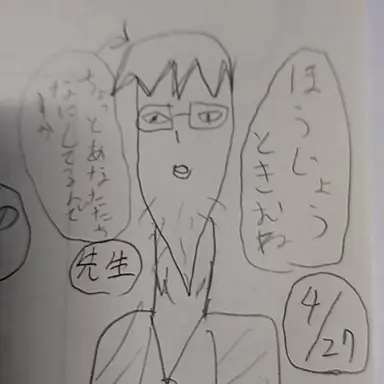 ほうじょう
ときむね
ちょっとあなたたち
なにしてるんで
すか
先生
4/27
の